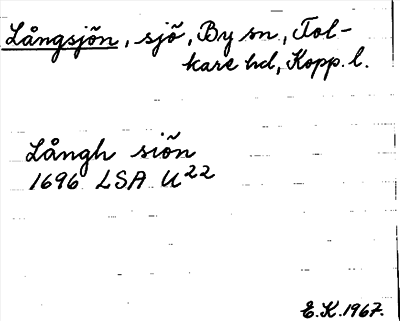 Långsjön, sjö, By sn., Fol-
kare hd, Kopp. l.
Långh siön
1696 LSA U22
E.K. 1967.